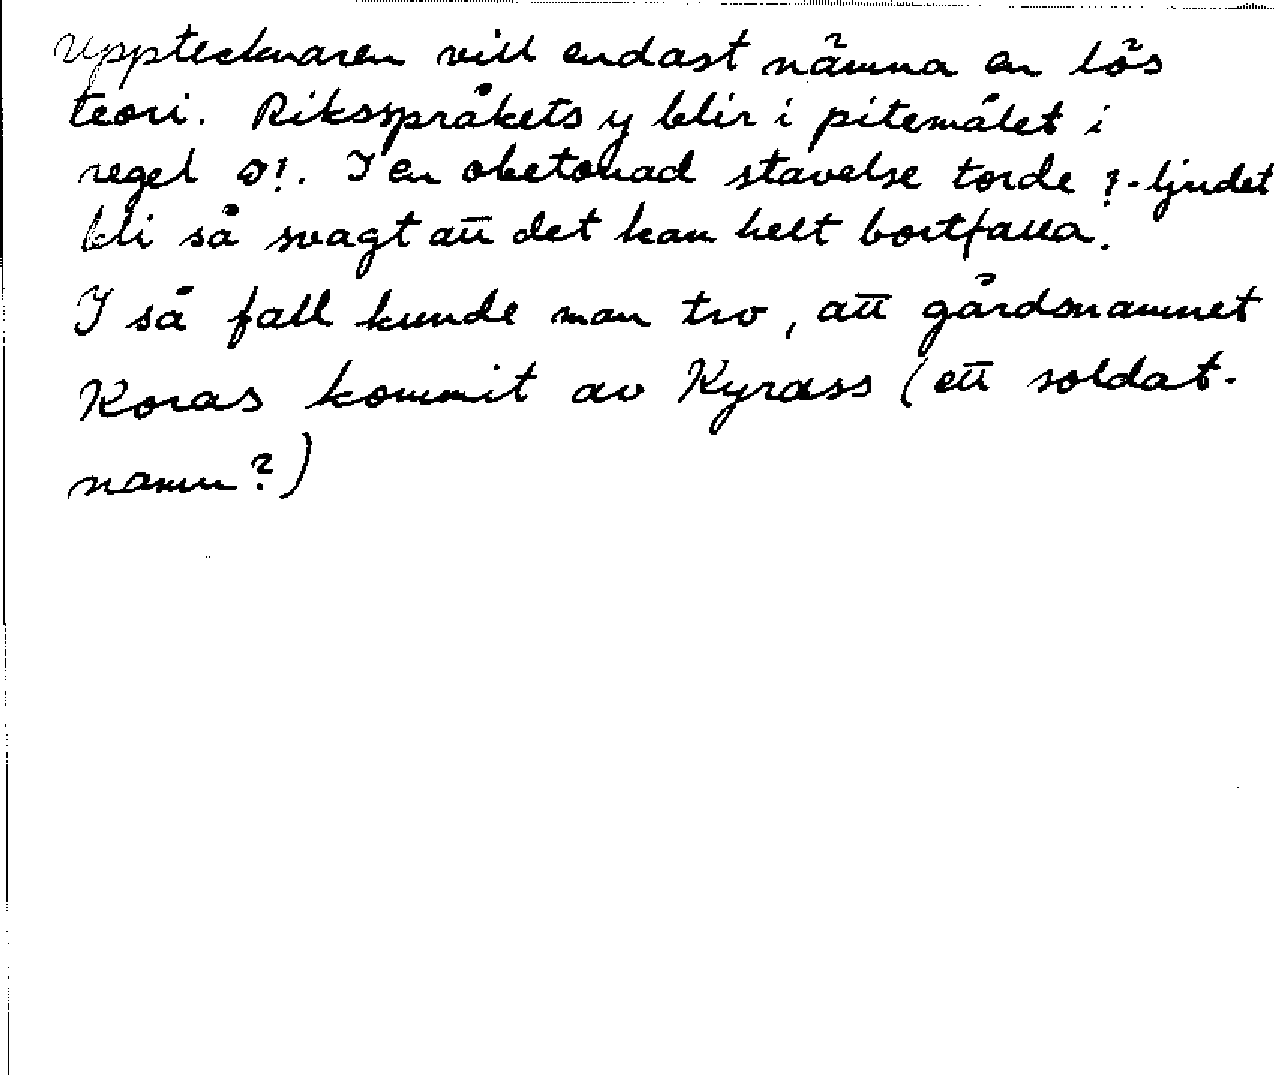 Upptecknaren vill endast nämna en lös
teori. Riksspråkets y blir i pitemålet i
regel o!. I en obetonad stavelse torde !-ljudet
bli så svagt att det kan helt bortfalla.
I så fall kunde man tro, att gårdsnamnet
Koras kommit av Kyrass (ett soldat-
namn?)